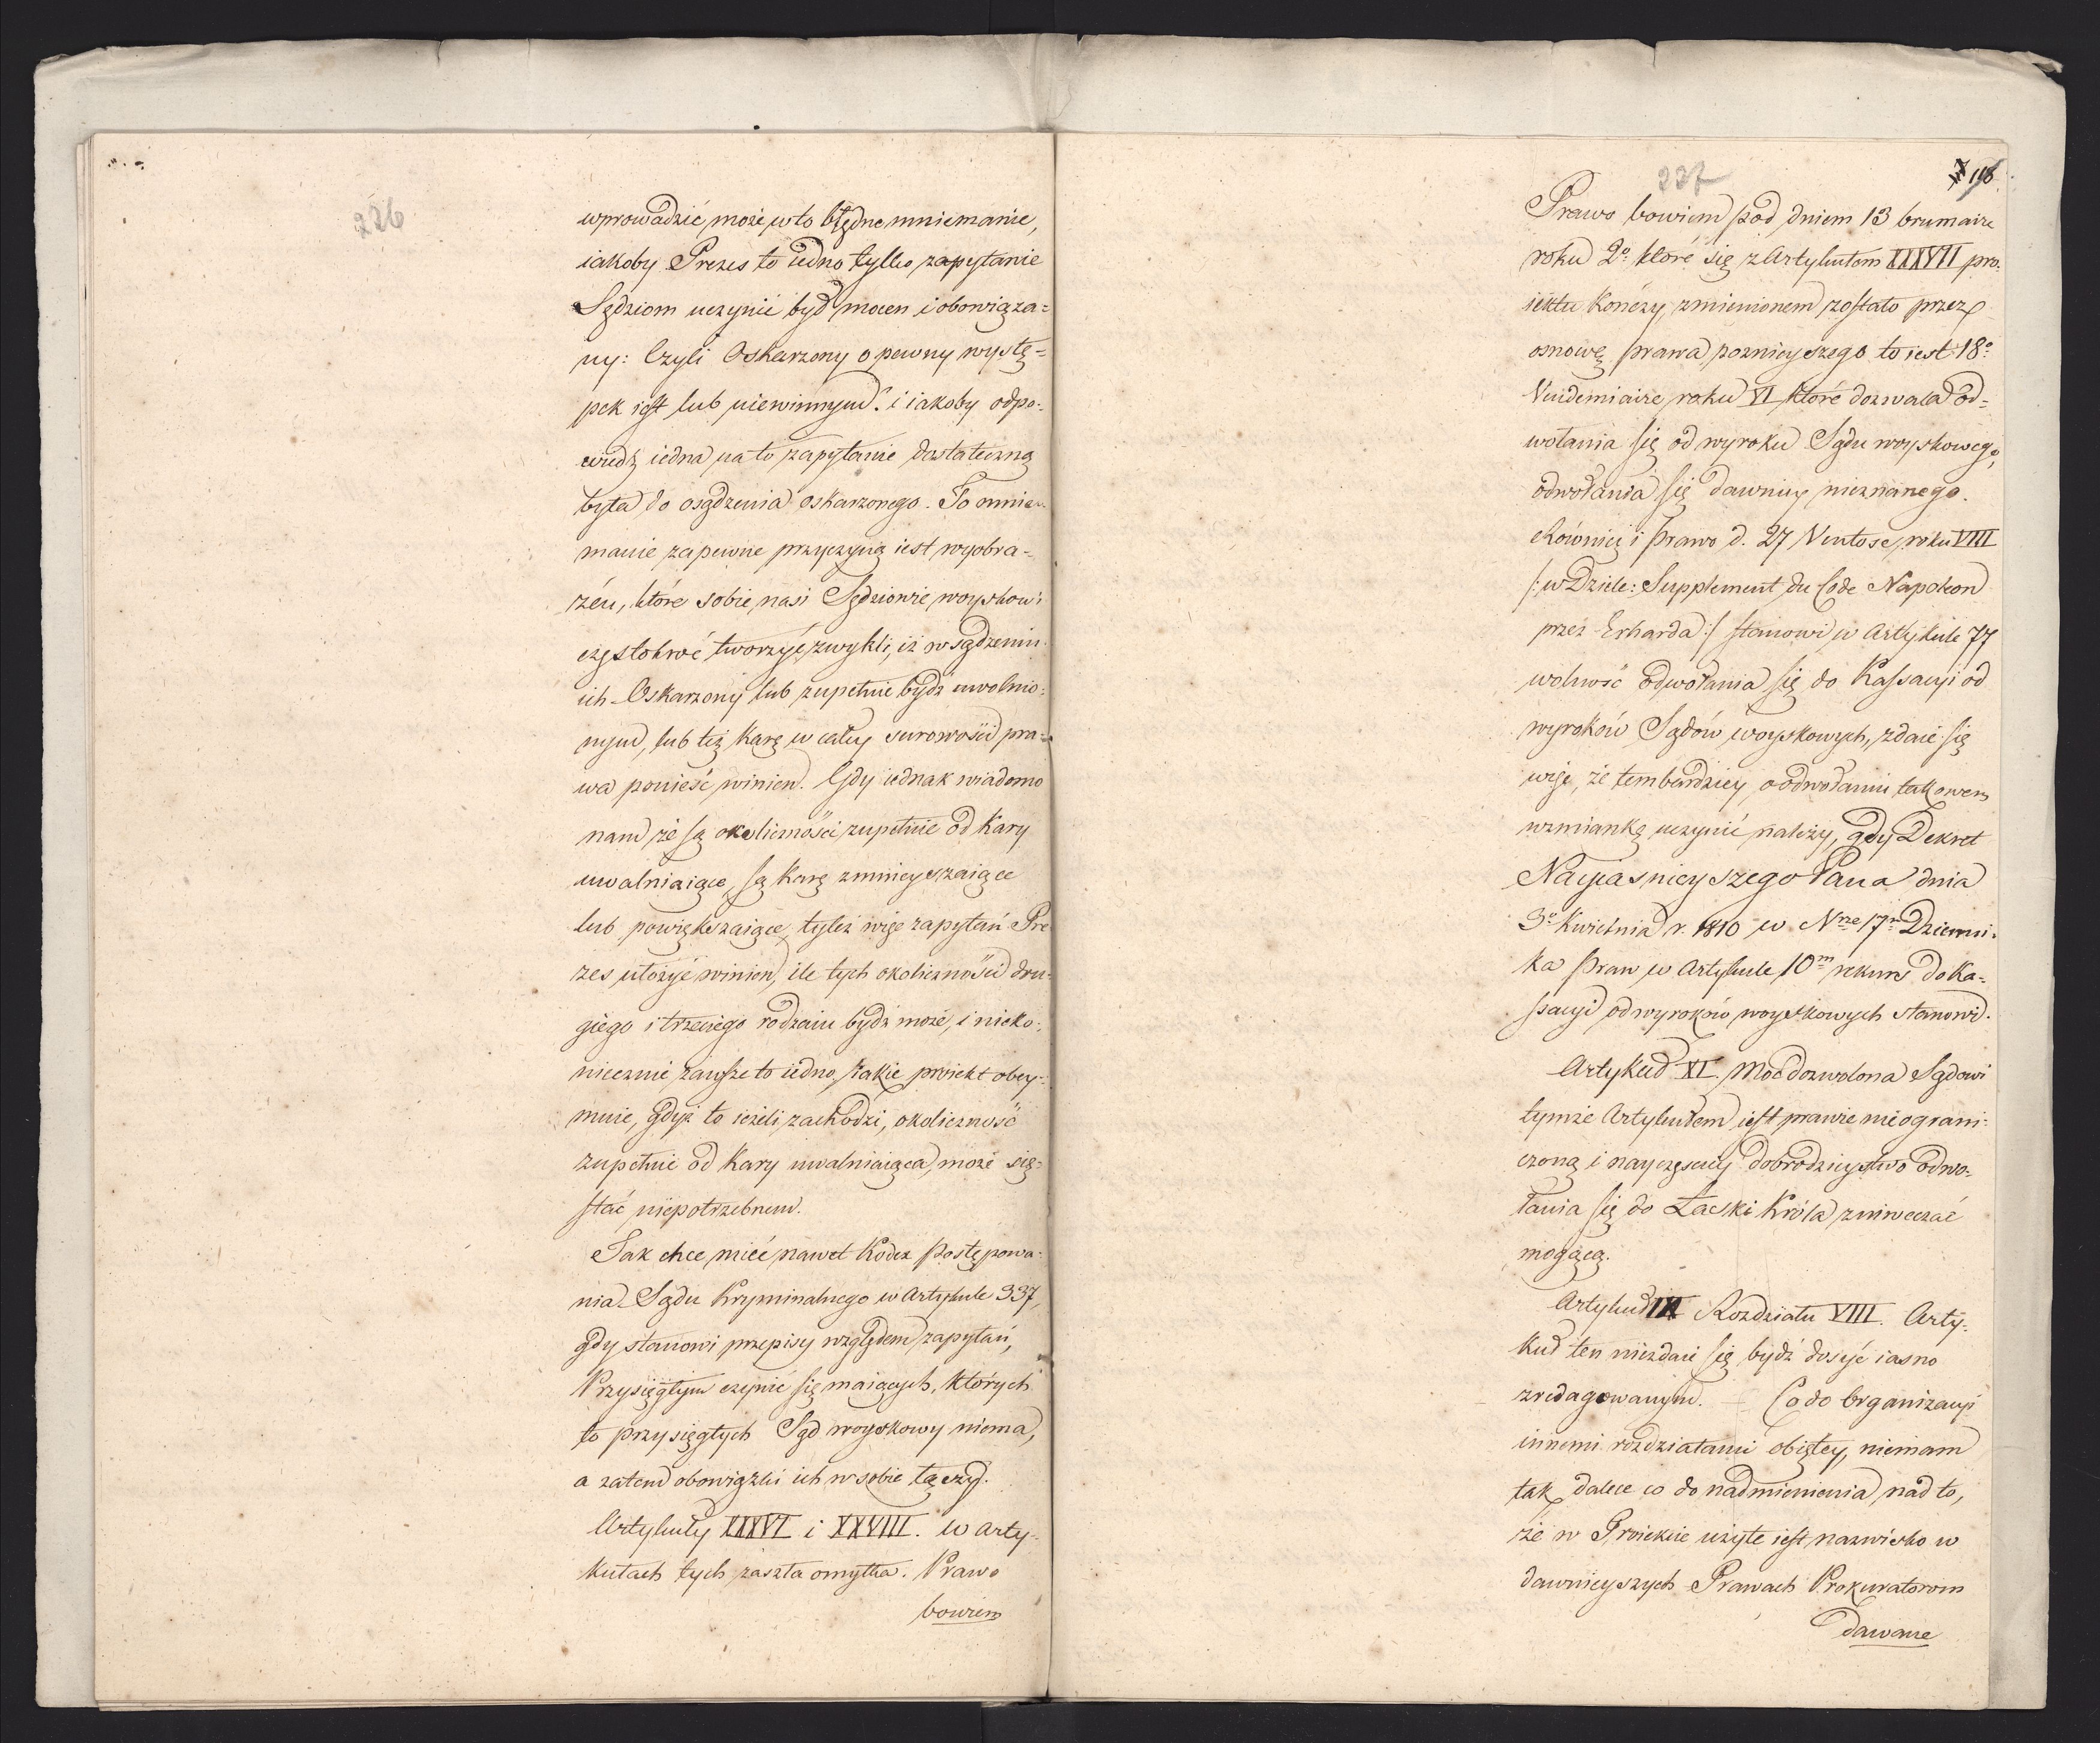 226
wprowadzić może w to błędne mniemanie,
iakoby Prezes to iedno tylko zapytanie
Sędziom uczynić był mocen i obowiąza=
ny: Czyli Oskarzony o pewny wystę=
pek iest lub niewinnym? i iakoby odpo=
wiedź iedna na to zapytanie dostateczną
była do osądzenia oskarzonego. To mnie=
manie zapewne przyczyną iest wyobra=
żeń, które sobie nasi Sędziowie woyskowi
częstokroć tworzyć zwykli, iż w sądzeniu
ich Oskarzony lub zupełnie bydź uwolnio=
nym, lub też karę w całey surowości pra=
wa ponieść winien. Gdy iednak wiadomo
nam że są okoliczności zupełnie od kary
uwalniaiące, są karę zmnieyszaiące
lub powiększaiące, tyleż więc zapytań Pre
zes ułożyć winien, ile tych okoliczności dru=
giego i trzeciego rodzaiu bydź może, i nieko=
niecznie zawsze to iedno, iakie proiekt obey=
muie, gdyż to ieżeli zachodzi, okoliczność
zupełnie od kary uwalniaiąca, może się
stać niepotrzebnem.
Tak chce mieć nawet Kodex Postępowa=
nia Sądu Kryminalnego w Artykule 337,
gdy stanowi przepisy względem zapytań,
Przysięgłym czynić się maiących, których
to przysięgłych Sąd woyskowy niema,
a zatem obowiązki ich w sobie łączy.
Artykuły XXXVI i XXXVIII. W Arty=
kułach tych zaszła omyłka. Prawo
bowiem
227
118
Prawo bowiem pod dniem 13 brumaire
roku 2o. które się z Artykułem XXXVII pro=
iektu kończy, zmienionem zostało przez
osnowę prawa poznieyszego to iest 18o.
Vendemiaire roku VI które dozwala od=
wołania się od wyroku Sądu woyskowego,
odwołania się dawniey nieznanego.
Rownież i Prawo d. 27 Ventose roku VIII
/: w Dziele: Supplement du Code Napoleon
przez Erharda :/ stanowi w Artykule 77
wolność odwołania się do Kassacyi od
wyroków Sądów woyskowych, zdaie się
więc, że tembardziey o odwołaniu takowem
wzmiankę uczynić należy, gdy Dekret
Nayiasnieyszego Pana dnia
3o. Kwietnia r. 1810 w Nrze 17m Dzienni=
ka Praw w Artykule 10m rekurs do Ka=
ssacyi od wyroków woyskowych stanowi.
Artykuł XI. Moc dozwolona Sądowi
tymże Artykułem iest prawie nieograni=
czoną i nayczęściey dobrodzieystwo odwo=
łania się do Łaski Króla zniweczać
mogącą.
Artykuł IX Rozdziału VIII. Arty=
kuł ten niezdaie się bydź dosyć iasno
zredagowanym. – Co do Organizacyi
innemi rozdziałami obiętey, niemam
tak dalece co do nadmienienia nad to,
że w Proiekcie użyte iest nazwisko w
dawnieyszych Prawach Prokuratorom
dawane